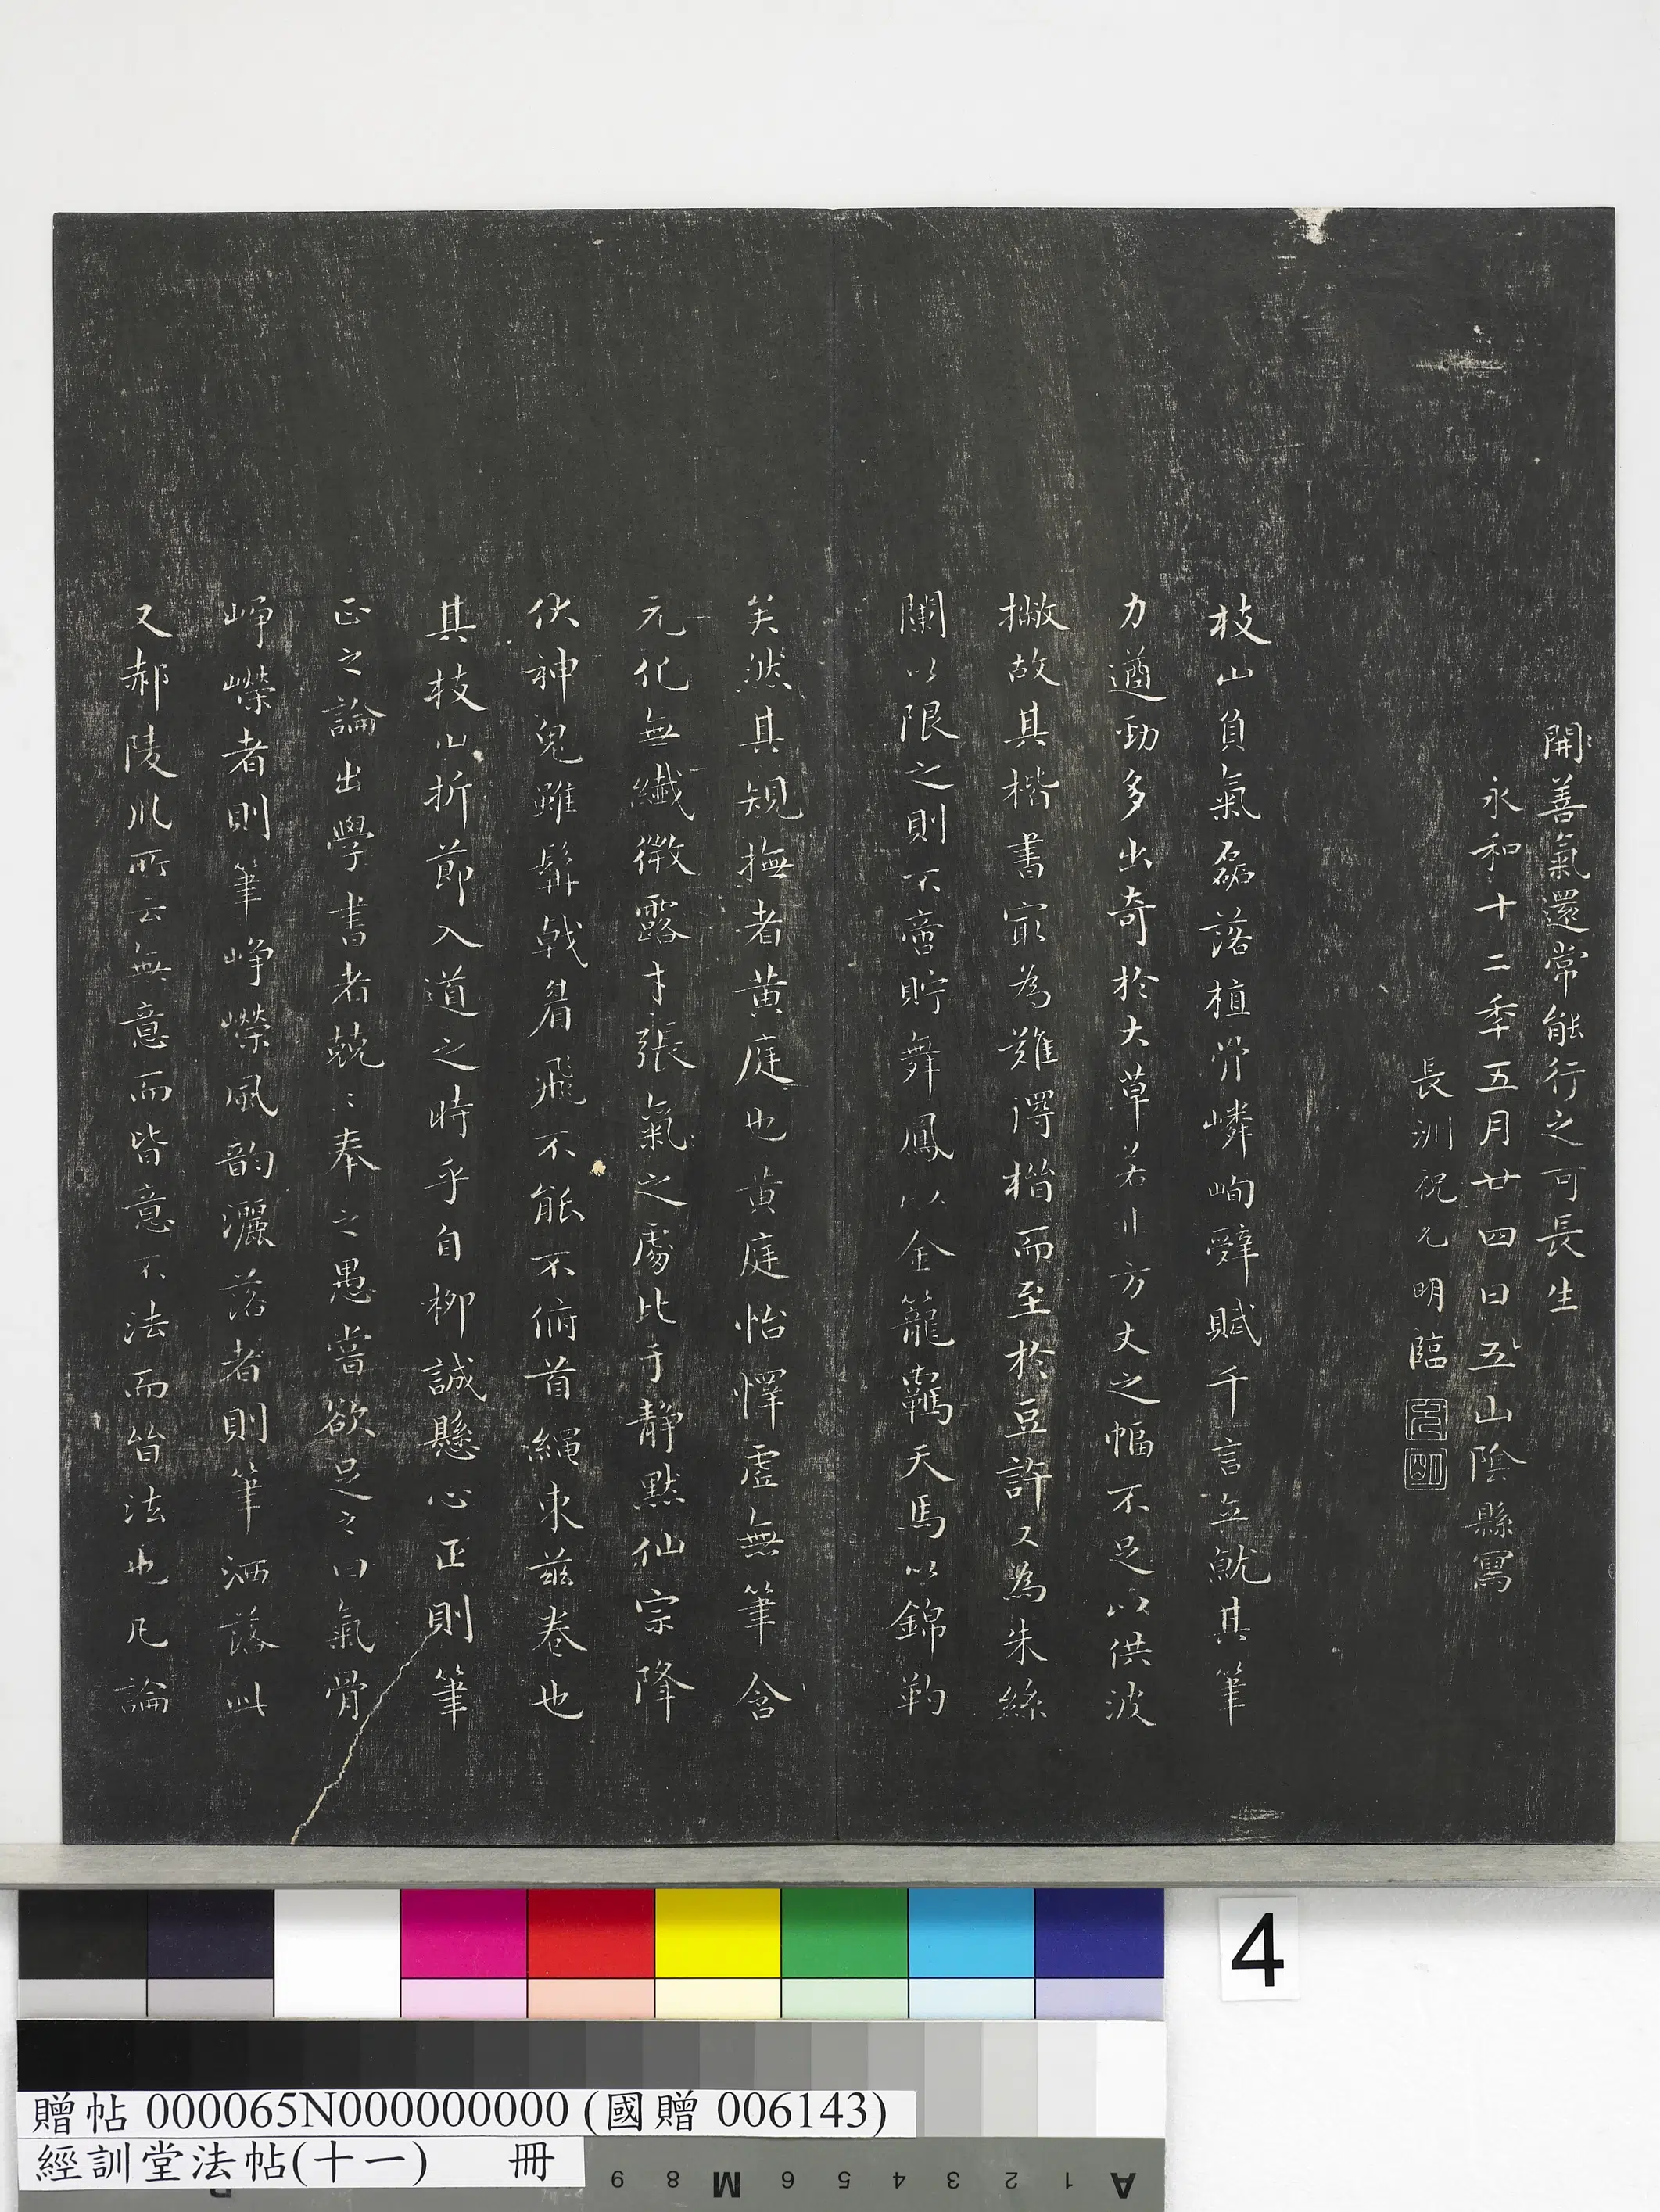 開善氣還常能行之可長生
永和十二年五月廿四日五山陰縣寫
長洲祝允明臨
允
明
枝山負氣磊落植骨嶙峋辭賦千言立就其筆
力遒勁多出奇於大草若非方丈之幅不足以供波
撇故其楷書寂為難得楷而至於豆許又為朱絲
闌以限之則不啻貯舞鳳以金籠羈天馬以錦勒
矣然其規撫者黃庭也黃庭怡懌虛無筆含
元化無纖微露才張氣之處比于靜默仙宗降
伏神鬼雖髯戟眉飛不能不俯首繩束茲卷也
其枝山折節入道之時乎自柳誠懸心正則筆
正之論出學書者兢〻奉之愚嘗欲足之曰氣骨
崢嶸者則筆崢嶸風韵灑落者則筆洒落此
又郝陵川所云無意而皆意不法而皆法也凡論
4
贈帖 000065N000000000 (國贈 006143)
經訓堂法帖(十一) 冊
A 1 2 3 4 5 6 M 8 9